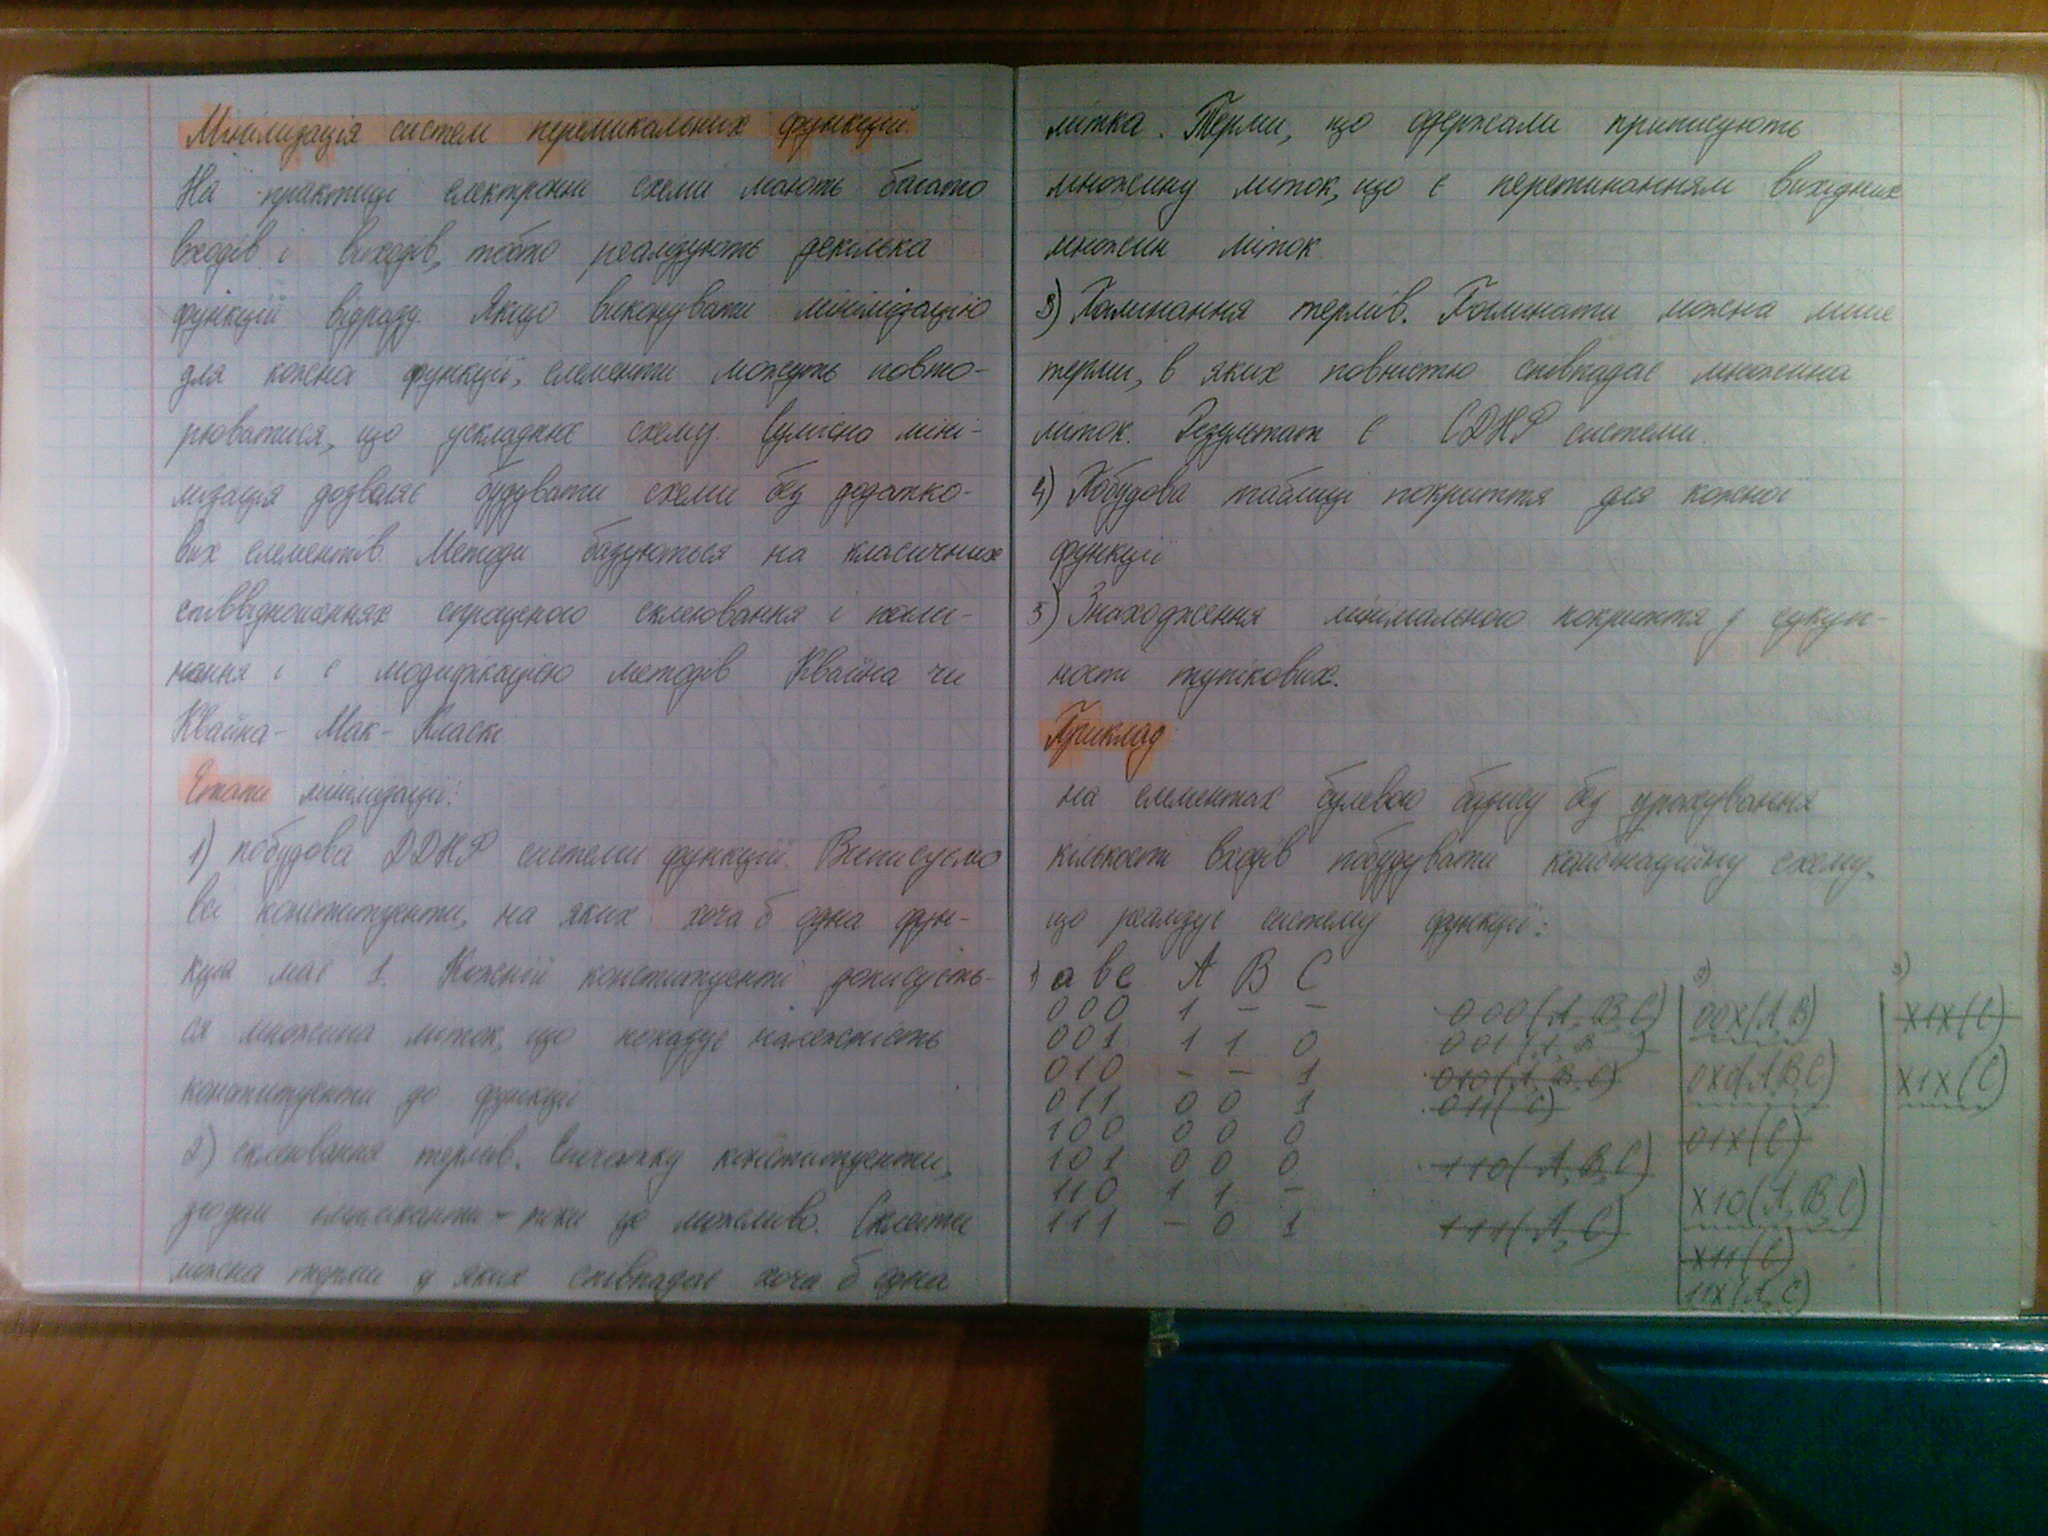 Мінімізація систем перемикальних функцій.
На практиці електронні схеми мають багато
входів і виходів, тобто реалізують декілька
функцій відразу. Якщо виконувати мінімізацію
для кожна функції, елементи можуть повто-
рюватися, що ускладнює схему. Сумісна міні-
мізація дозволяє будувати схеми без додатко-
вих елементів. Методи базуються на класичних
співвідношеннях спрощеного склеювання і погли-
нання і є модифікацією методів Квайна чи
Квайна- Мак- Класкі
Етапи мінімізації:
1) побудова ДДНФ системи функцій. Виписуємо
всі конституенти, на яких хоча б одна фун-
кція має 1. Кожній конституенті дописуєть-
ся множина міток, що показує належність
конституенти до функції
2) склеювання термів. Спочатку конституенти,
згодом імпліканти - поки це можливо. Склеїти
можна терми у яких співпадає хоча б одна
мітка. Терми, що одержали приписують
множину міток, що є перетинанням вихідних
множин міток.
3) Поглинання термів. Поглинати можна лише
терми, в яких повністю співпадає множина
міток. Результат є СДНФ системи.
4) Побудова таблиці покриття для кожної
функції
5) Знаходження мінімального покриття у сукуп-
ності тупікових.
Приклад:
на елементах булевого базису без урахування
кількості входів побудувати комбінаційну схему,
що реалізує систему функції:
1) a b c A B C
000 1 - -
001 1 1 0
010 - - 1
011 0 0 1
100 0 0 0
101 0 0 0
110 1 1 -
111 - 0 1
000(A, B, C)
001(A, B
010(A, B, C)
011( C)
110(A, B, C)
111(A, C)
2)
00X(A, B)
0X0(A,B,C)
01X(C)
X10(A, B, C)
X11(C)
11X(A, C)
3)
X1X(C)
X1X(C)